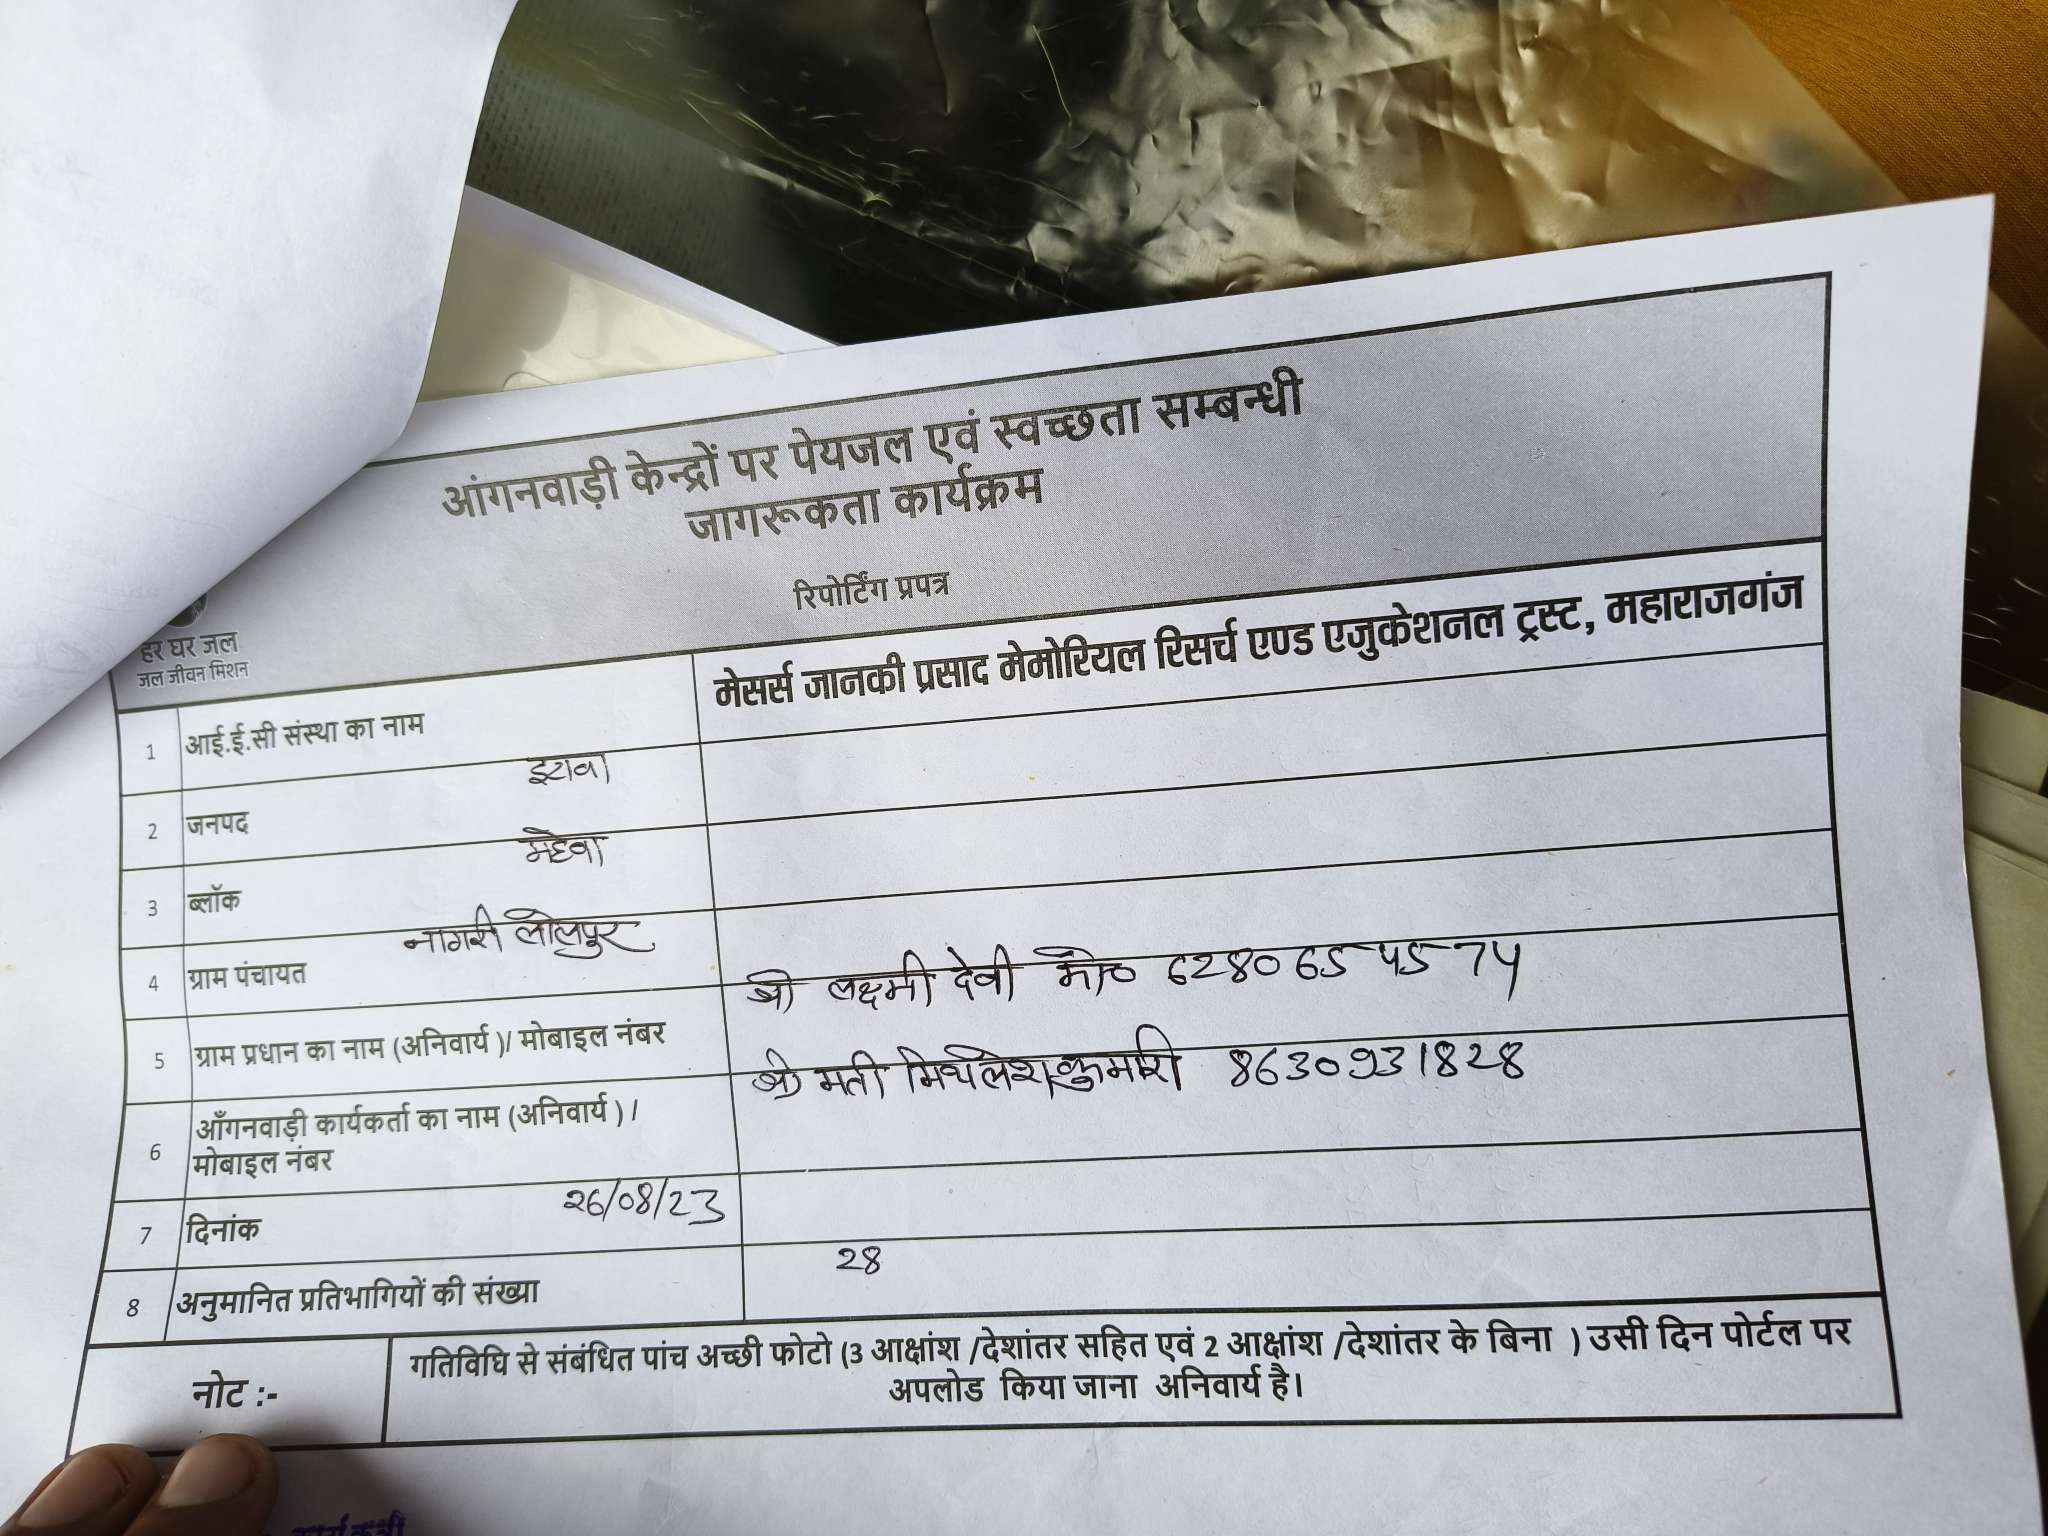 आंगनवाड़ी केन्द्रों पर पेयजल एवं स्वच्छता सम्बन्धी
जागरूकता कार्यक्रम
रिपोर्टिंग प्रपत्र
हर घर जल
जल जीवन मिशन
1 आई.ई.सी संस्था का नाम मेसर्स जानकी प्रसाद मेमोरियल रिसर्च एण्ड एजुकेशनल ट्रस्ट, महाराजगंज
2 जनपद इटावा
3 ब्लॉक महेवा
4 ग्राम पंचायत नागरी लोलपुर
5 ग्राम प्रधान का नाम (अनिवार्य )/ मोबाइल नंबर श्री लक्ष्मी देवी मो० 6280654574
6 आँगनवाड़ी कार्यकर्ता का नाम (अनिवार्य ) / श्री मती मिथलेश कुमारी 8630931828
मोबाइल नंबर
7 दिनांक 26/08/23
8 अनुमानित प्रतिभागियों की संख्या 28
नोट :- गतिविधि से संबंधित पांच अच्छी फोटो (3 आक्षांश /देशांतर सहित एवं 2 आक्षांश /देशांतर के बिना ) उसी दिन पोर्टल पर
अपलोड किया जाना अनिवार्य है।